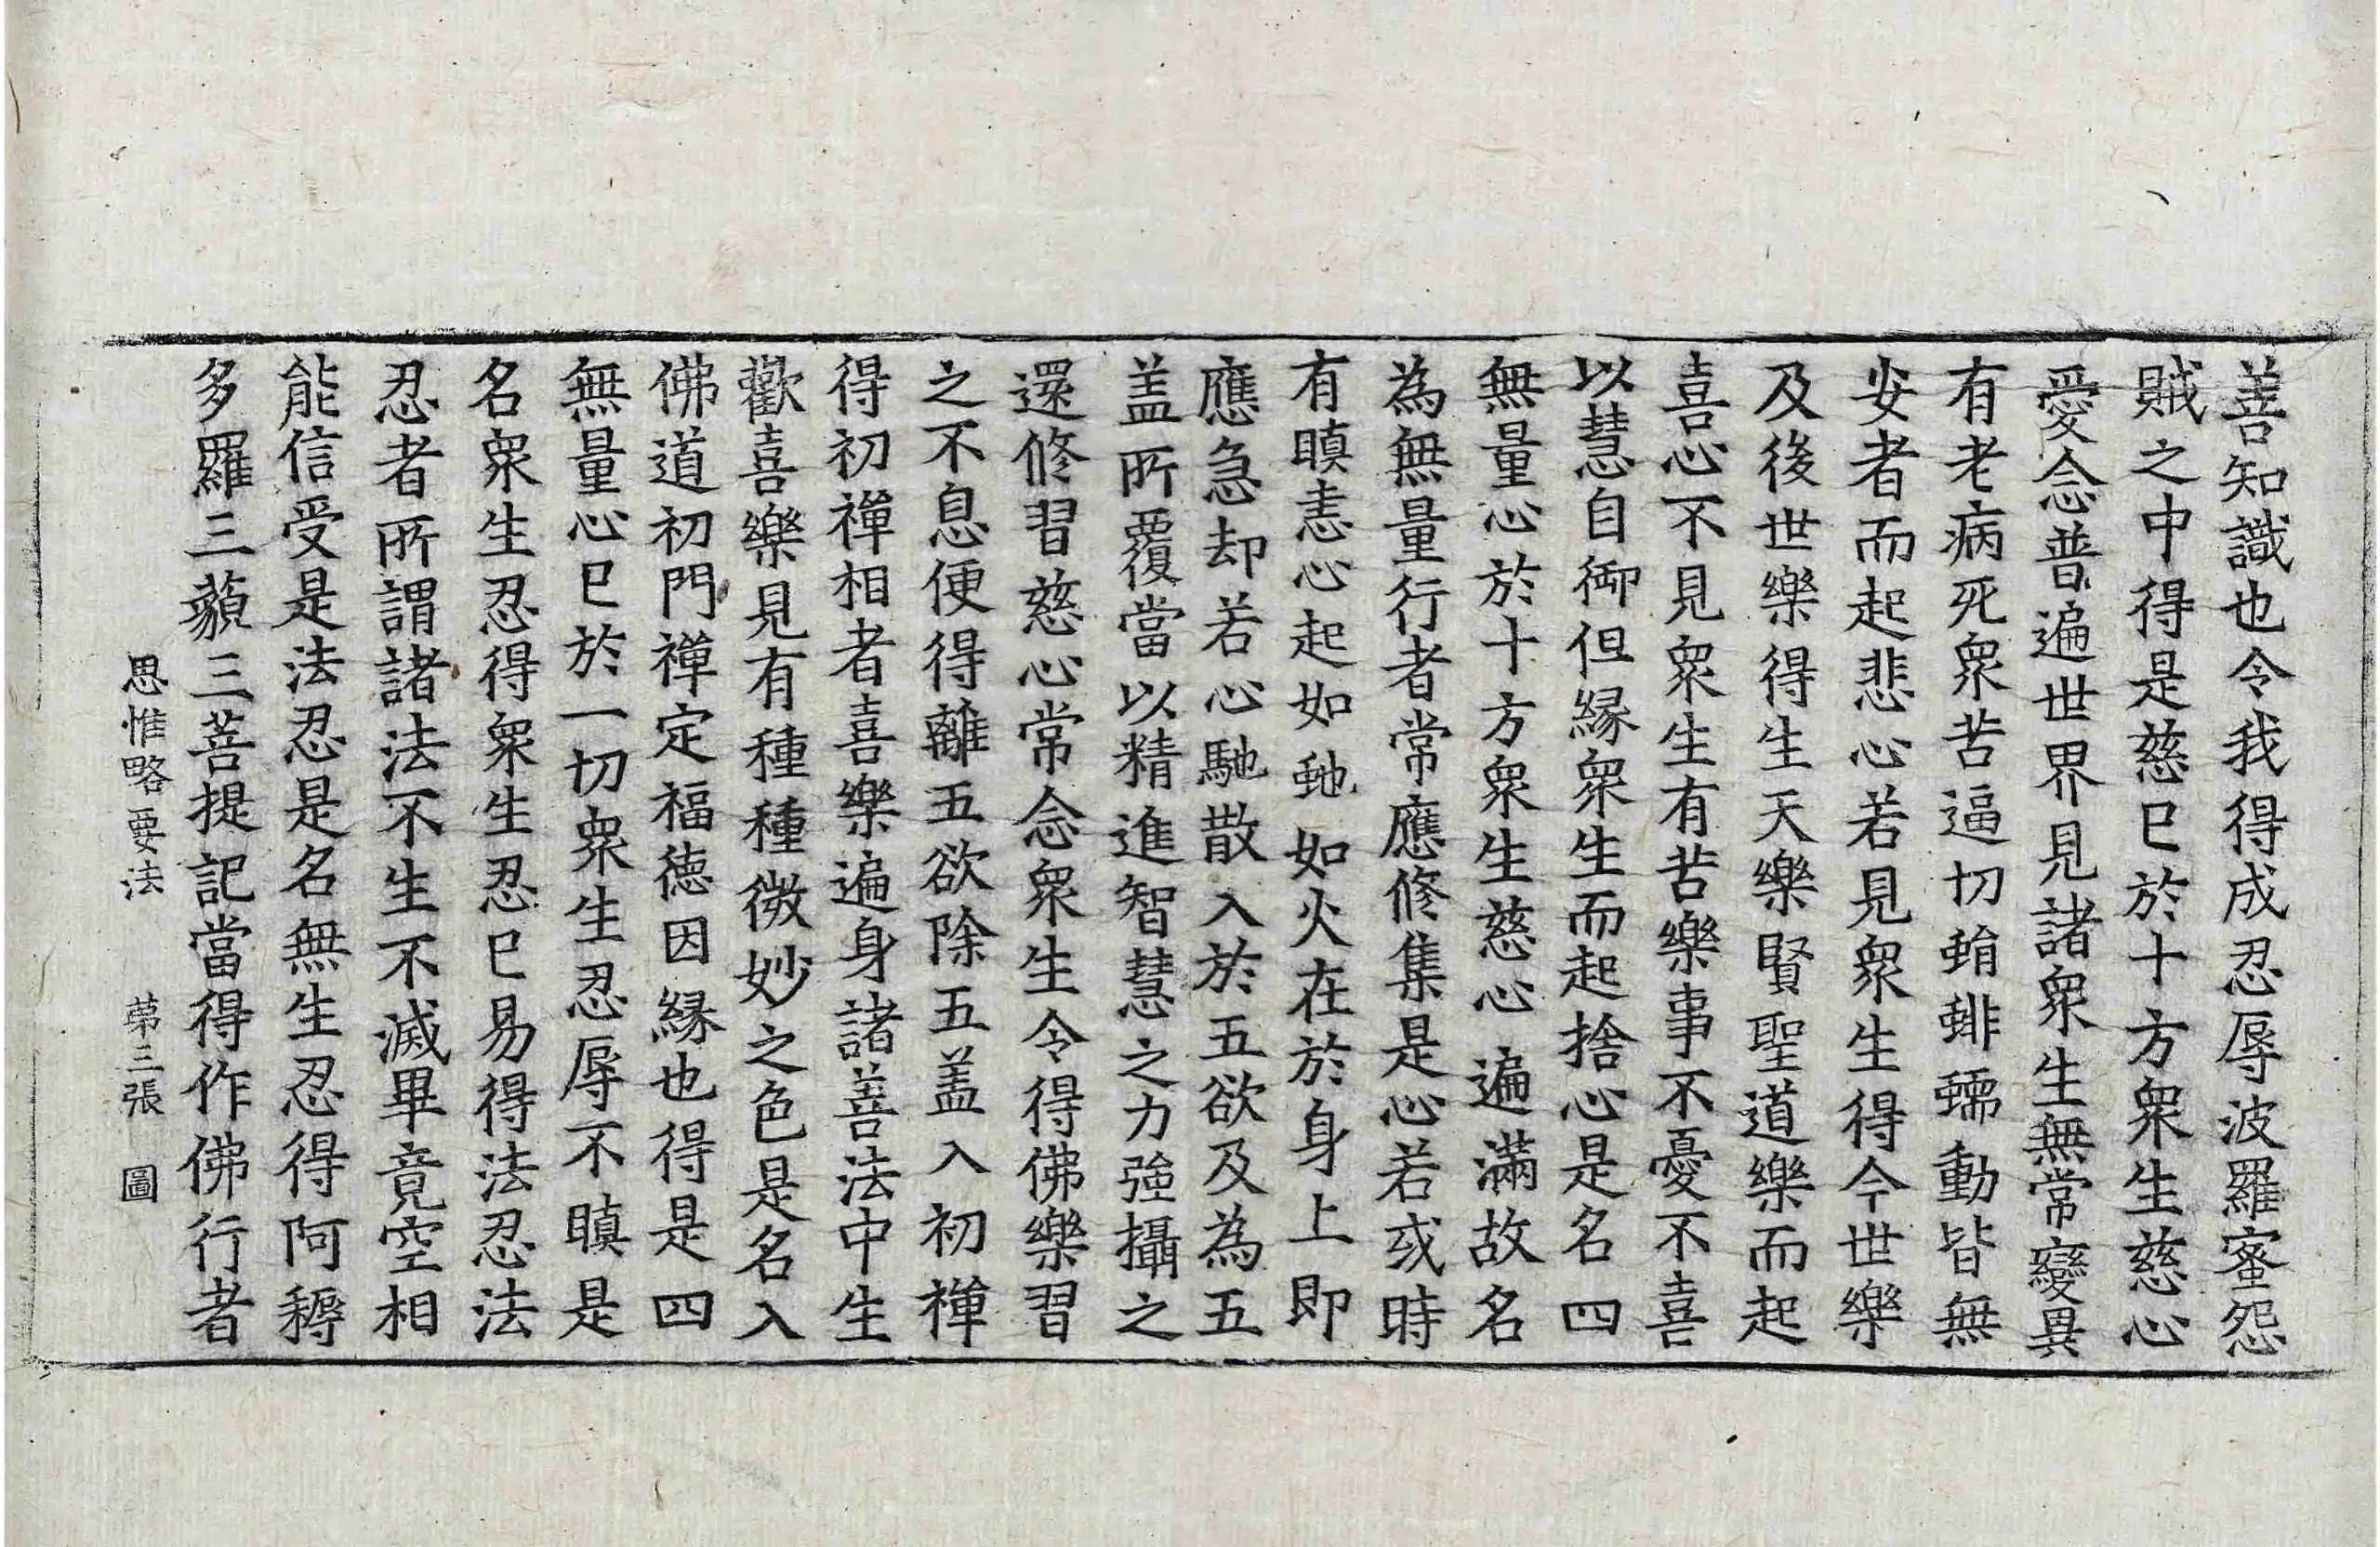 善知識也令我得成忍辱波羅蜜怨
賊之中得是慈已於十方衆生慈心
愛念普遍世界見諸衆生無常變異
有老病死衆苦逼切蜎蜚蠕動皆無
安者而起悲心若見衆生得今世樂
及後世樂得生天樂賢聖道樂而起
喜心不見衆生有苦樂事不憂不喜
以慧自御但緣衆生而起捨心是名四
無量心於十方衆生慈心遍滿故名
為無量行者常應修集是心若或時
有瞋恚心起如虵如火在於身上即
應急却若心馳散入於五欲及為五
盖所覆當以精進智慧之力強攝之
還修習慈心常念衆生令得佛樂習
之不息便得離五欲除五盖入初禪
得初禪相者喜樂遍身諸善法中生
歡喜樂見有種種微妙之色是名入
佛道初門禪定福德因緣也得是四
無量心已於一切衆生忍辱不瞋是
名衆生忍得衆生忍已易得法忍法
忍者所謂諸法不生不滅畢竟空相
能信受是法忍是名無生忍得阿耨
多羅三藐三菩提記當得作佛行者
思惟略要法 第三張 圖